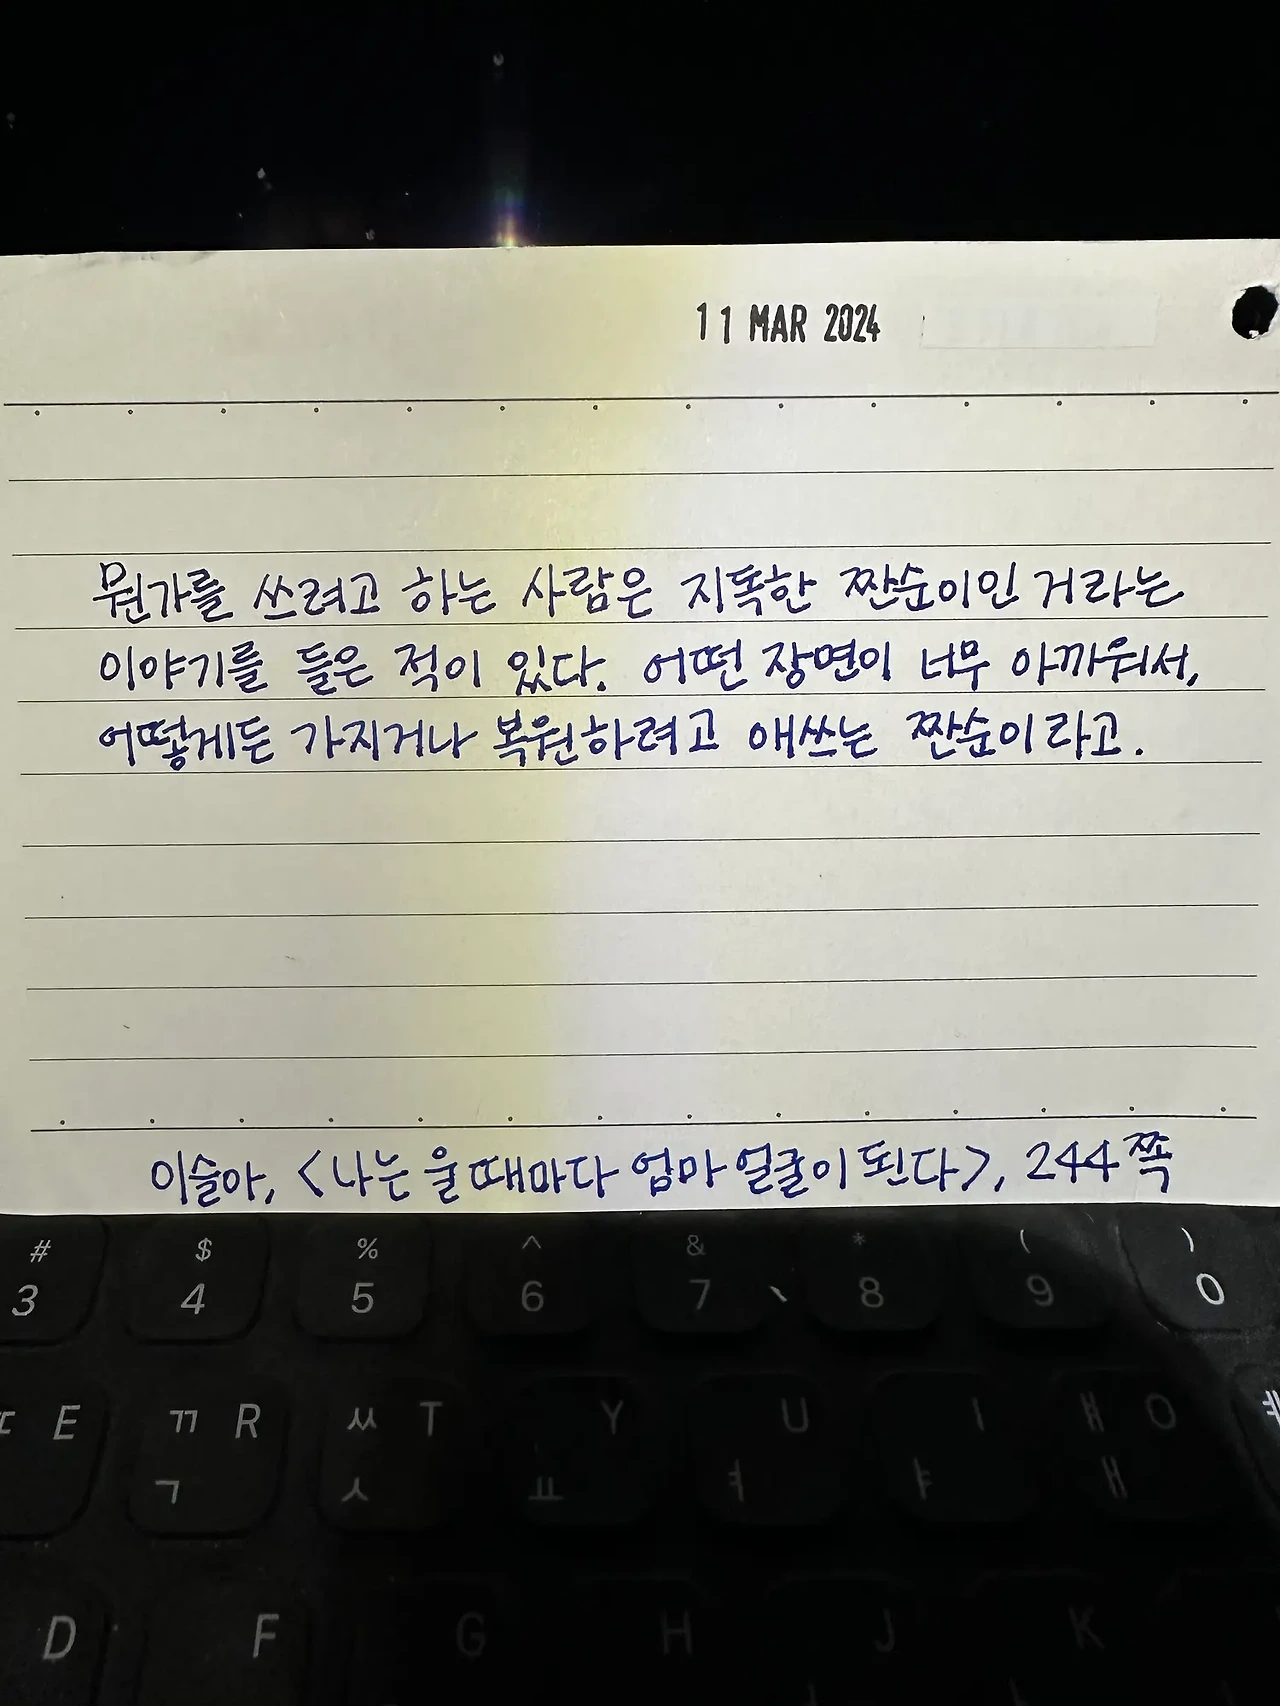 11 MAR 2024
뭔가를 쓰려고 하는 사람은 지독한 짠순이인 거라는
이야기를 들은 적이 있다. 어떤 장면이 너무 아까워서,
어떻게든 가지거나 복원하려고 애쓰는 짠순이라고.
이슬아, <나는 울 때마다 엄마 얼굴이 된다>, 244쪽
# $ % ^ & * ( )
3 4 5 6 7 8 9 0
ㄸ E ㄲ R ㅆ T Y U I ㅒ O
ㄱ ㅅ ㅛ ㅕ ㅑ ㅐ
D F G H J K